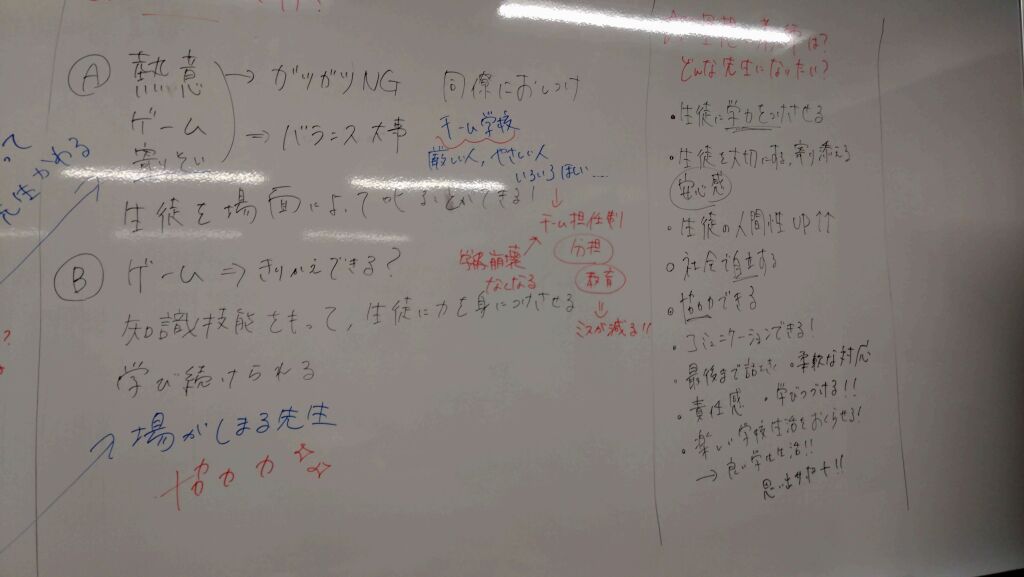 って
先生かわる
Ⓐ 熱意 → ガツガツNG 同僚におしつけ
ゲーム ⇒ バランス大事
寄りそい
チーム学校
厳しい人, やさしい人
いろいろほしい…
生徒を場面によって叱ることができる!
↓
チーム担任制
分担
教育
↓
ミスが減る!!
学級崩壊
なくなる
Ⓑ ゲーム ⇒ きりかえできる?
知識技能をもって, 生徒に力を身につけさせる
学び続けられる
場がしまる先生
協力力
は?
どんな先生になりたい?
・生徒に学力をつけさせる
・生徒を大切にする, 寄り添える
安心感
・生徒の人間性UP↑↑
○ 社会で自立する
・協力できる
・コミュニケーションできる!
・最後まで話を ・柔軟な対応
・責任感 ・学びつづける!!
・楽しい学校生活をおくらせる!
→ 良い学生生活!!
思い出サポート!!